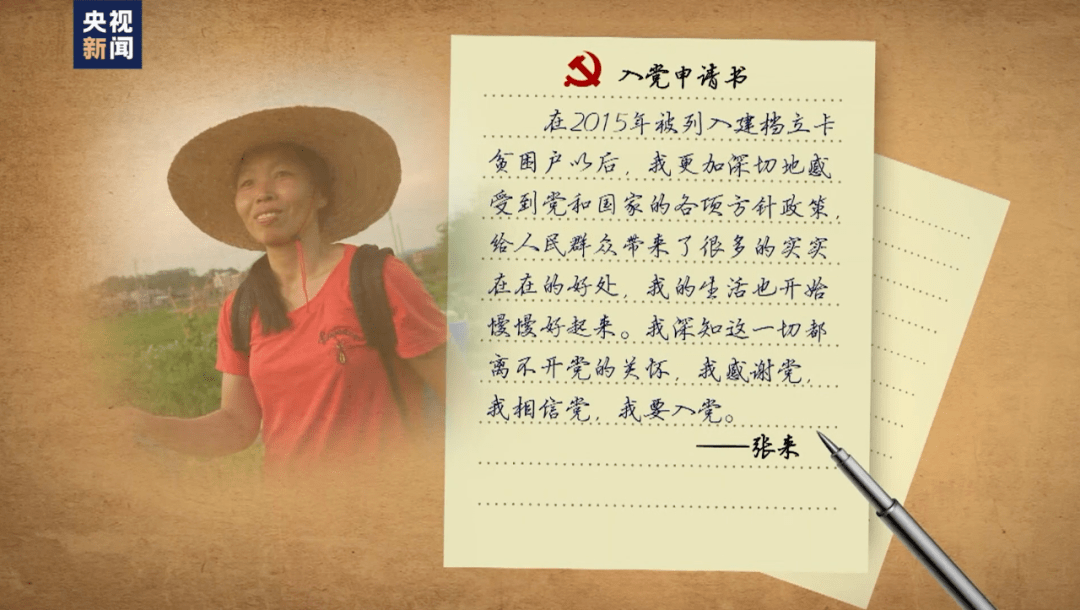 央视
新闻
入党申请书
在2015年被列入建档立卡
贫困户以后，我更加深切地感
受到党和国家的各项方针政策，
给人民群众带来了很多的实实
在在的好处，我的生活也开始
慢慢好起来。我深知这一切都
离不开党的关怀，我感谢党，
我相信党，我要入党。
——张来